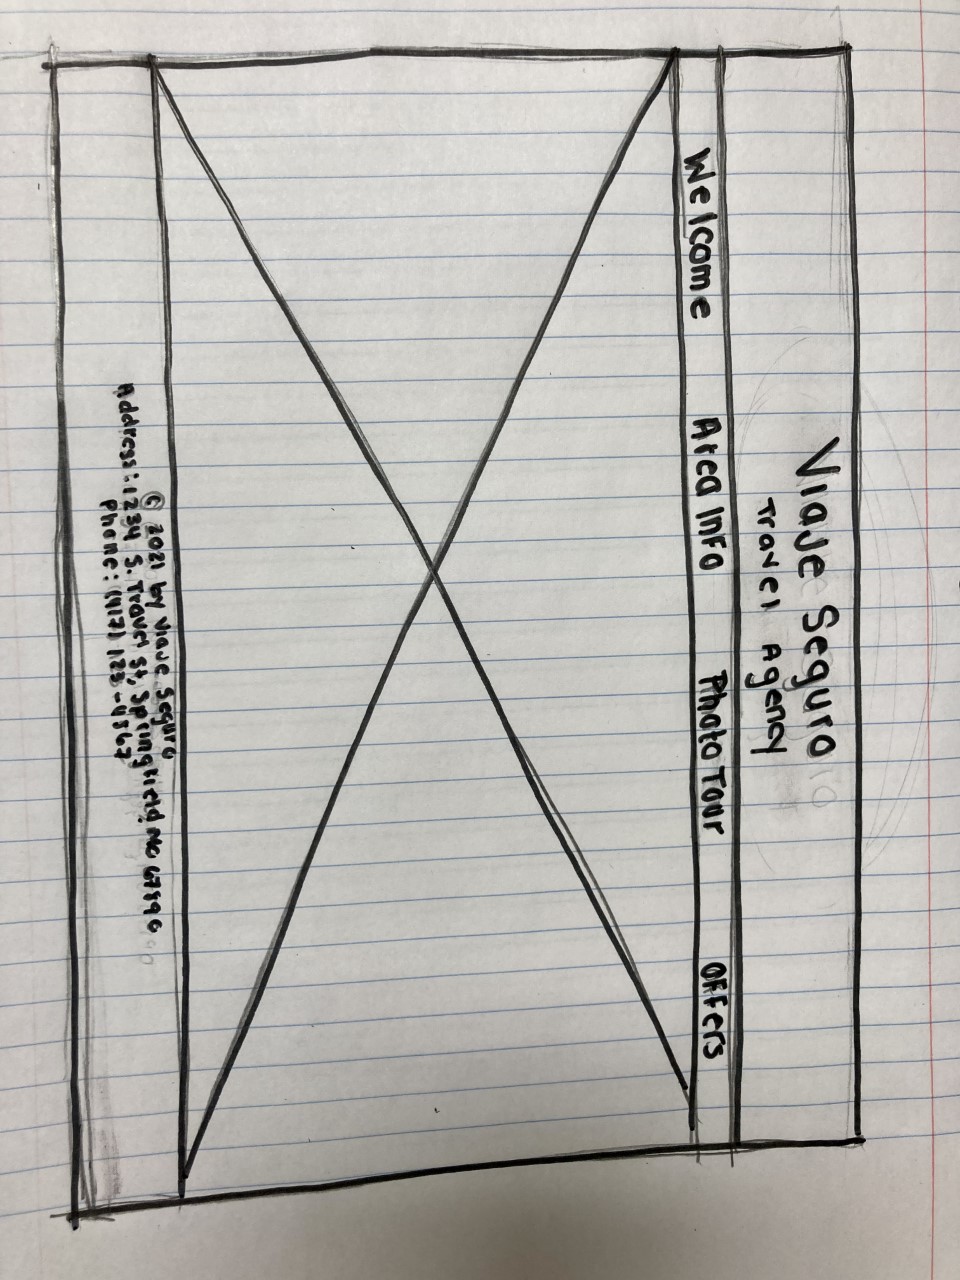 Viaje Seguro
Travel Agency
Welcome Area Info Photo Tour Offers
© 2021 by Viaje Seguro
Address: 1234 S. Travel St, Springfield, MO
Phone: (417) 123-4567